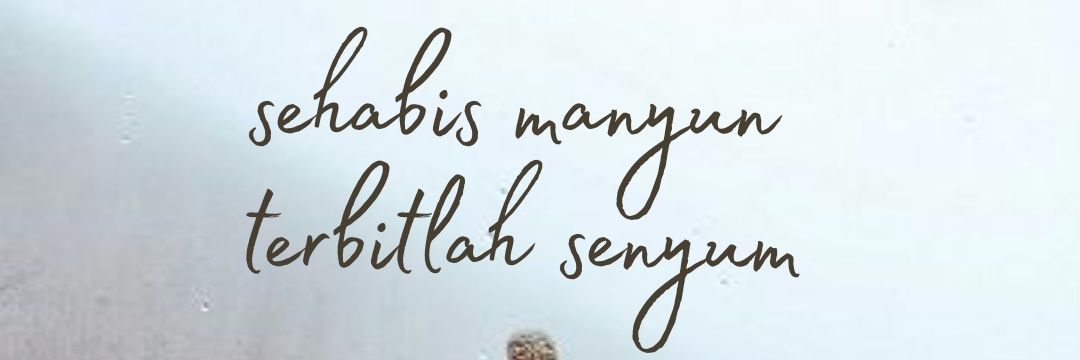 sehabis manyun
terbitlah senyum